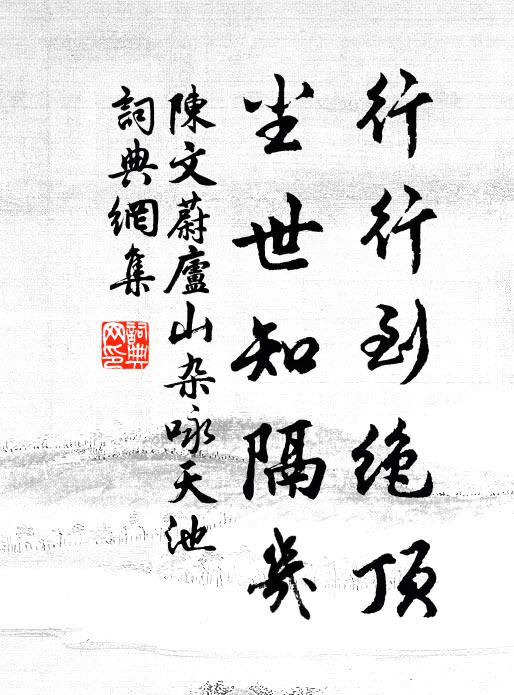 行行到绝顶
尘世知隔几
陳文蔚廬山杂咏天池
詞典網集
詞典網印